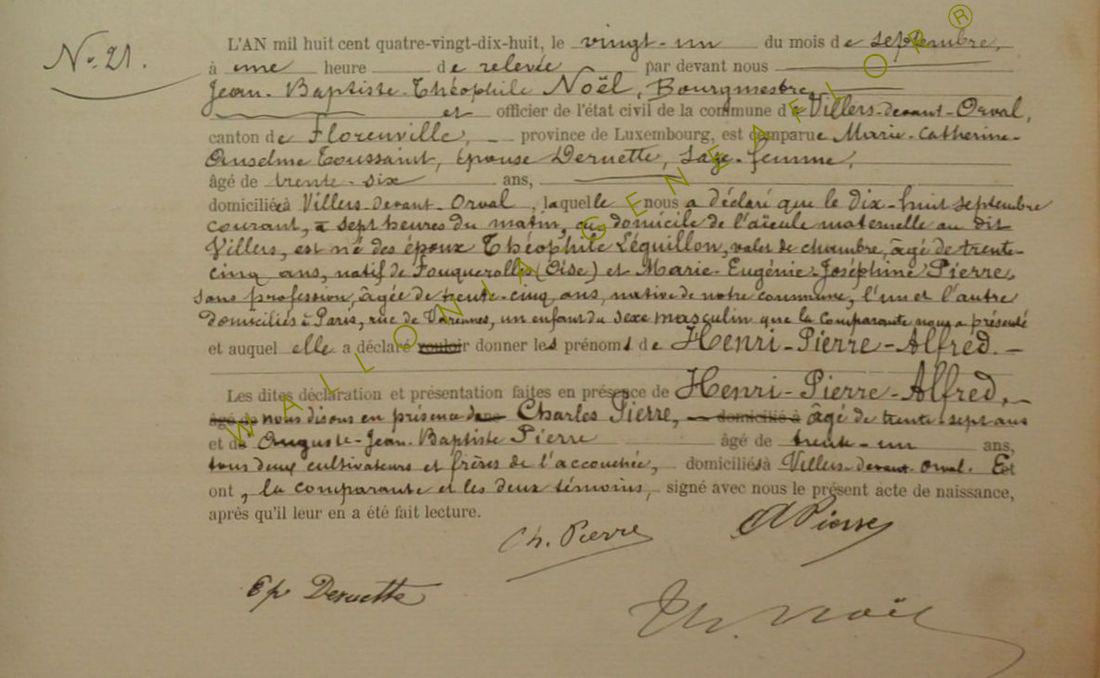 No. 21.
L'AN mil huit cent quatre-vingt-dix-huit, le vingt-un du mois de septembre,
à une heure de relevée par devant nous
Jean-Baptiste-Théophile Noël, Bourgmestre
et officier de l'état civil de la commune de Villers-devant-Orval,
canton de Florenville, province de Luxembourg, est comparue Marie-Catherine-
Anselme Toussaint, épouse Deruette, Sage-femme,
âgé de trente-six ans,
domiciliée à Villers-devant-Orval, laquelle nous a déclaré que le dix-huit septembre
courant, à sept heures du matin, au domicile de l'aïeule maternelle au dit
Villers, est né des époux Théophile Léguillon, valet de chambre, âgé de trente-
cinq ans, natif de Fouquerolles (Oise) et Marie-Eugénie-Joséphine Pierre,
sans profession, âgée de trente-cinq ans, native de notre commune, l'un et l'autre
domiciliés à Paris, rue de Varennes, un enfant du sexe masculin que la comparante nous a présenté
et auquel elle a déclaré vouloir donner les prénoms de Henri-Pierre-Alfred.
Les dites déclaration et présentation faites en présence de Henri-Pierre-Alfred,
âgé de nous disons en présence de Charles Pierre, domicilié à âgé de trente-sept ans
et de Auguste-Jean-Baptiste Pierre âgé de trente-un ans,
tous deux cultivateurs et frères de l'accouchée, domiciliés à Villers-devant-Orval. Et
ont, la comparante et les deux témoins, signé avec nous le présent acte de naissance,
après qu'il leur en a été fait lecture.
Ch. Pierre
A Pierre
Ep Deruette
Th. Noël
WALLONIA GENEAFLOR ®